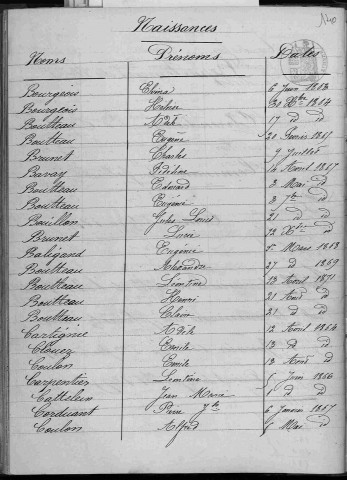 Naissances
Noms Prénoms Dates
Bourgeois Elma 6 Juin
Bourgeois
Boutteau 17 d
Boutteau Eugène 21 Février 1867
Brunet Charles 9 Juillet
Bavay 14 Avril 1867
Boutteau Edouard 2 Mai d
Boutteau Eugénie
Bouillon Jules Louis 21 d
Brunet Lucie
Baligand Eugénie 5 Mars 1868
Boutteau Alexandre 27 d 1869
Boutteau Léontine 13 Avril 1871
Boutteau Henri 21 Août d
Boutteau 21 d d
Cartignie Adèle 12 Avril 1864
Clouez Emile 13 d d
Coulon Emile 13 Août d
Carpentier Léontine 5 Juin 1866
Cattelun Jean Marie 1 d d
Corduant 6 Janvier 1867
Coulon Alfred Mai d